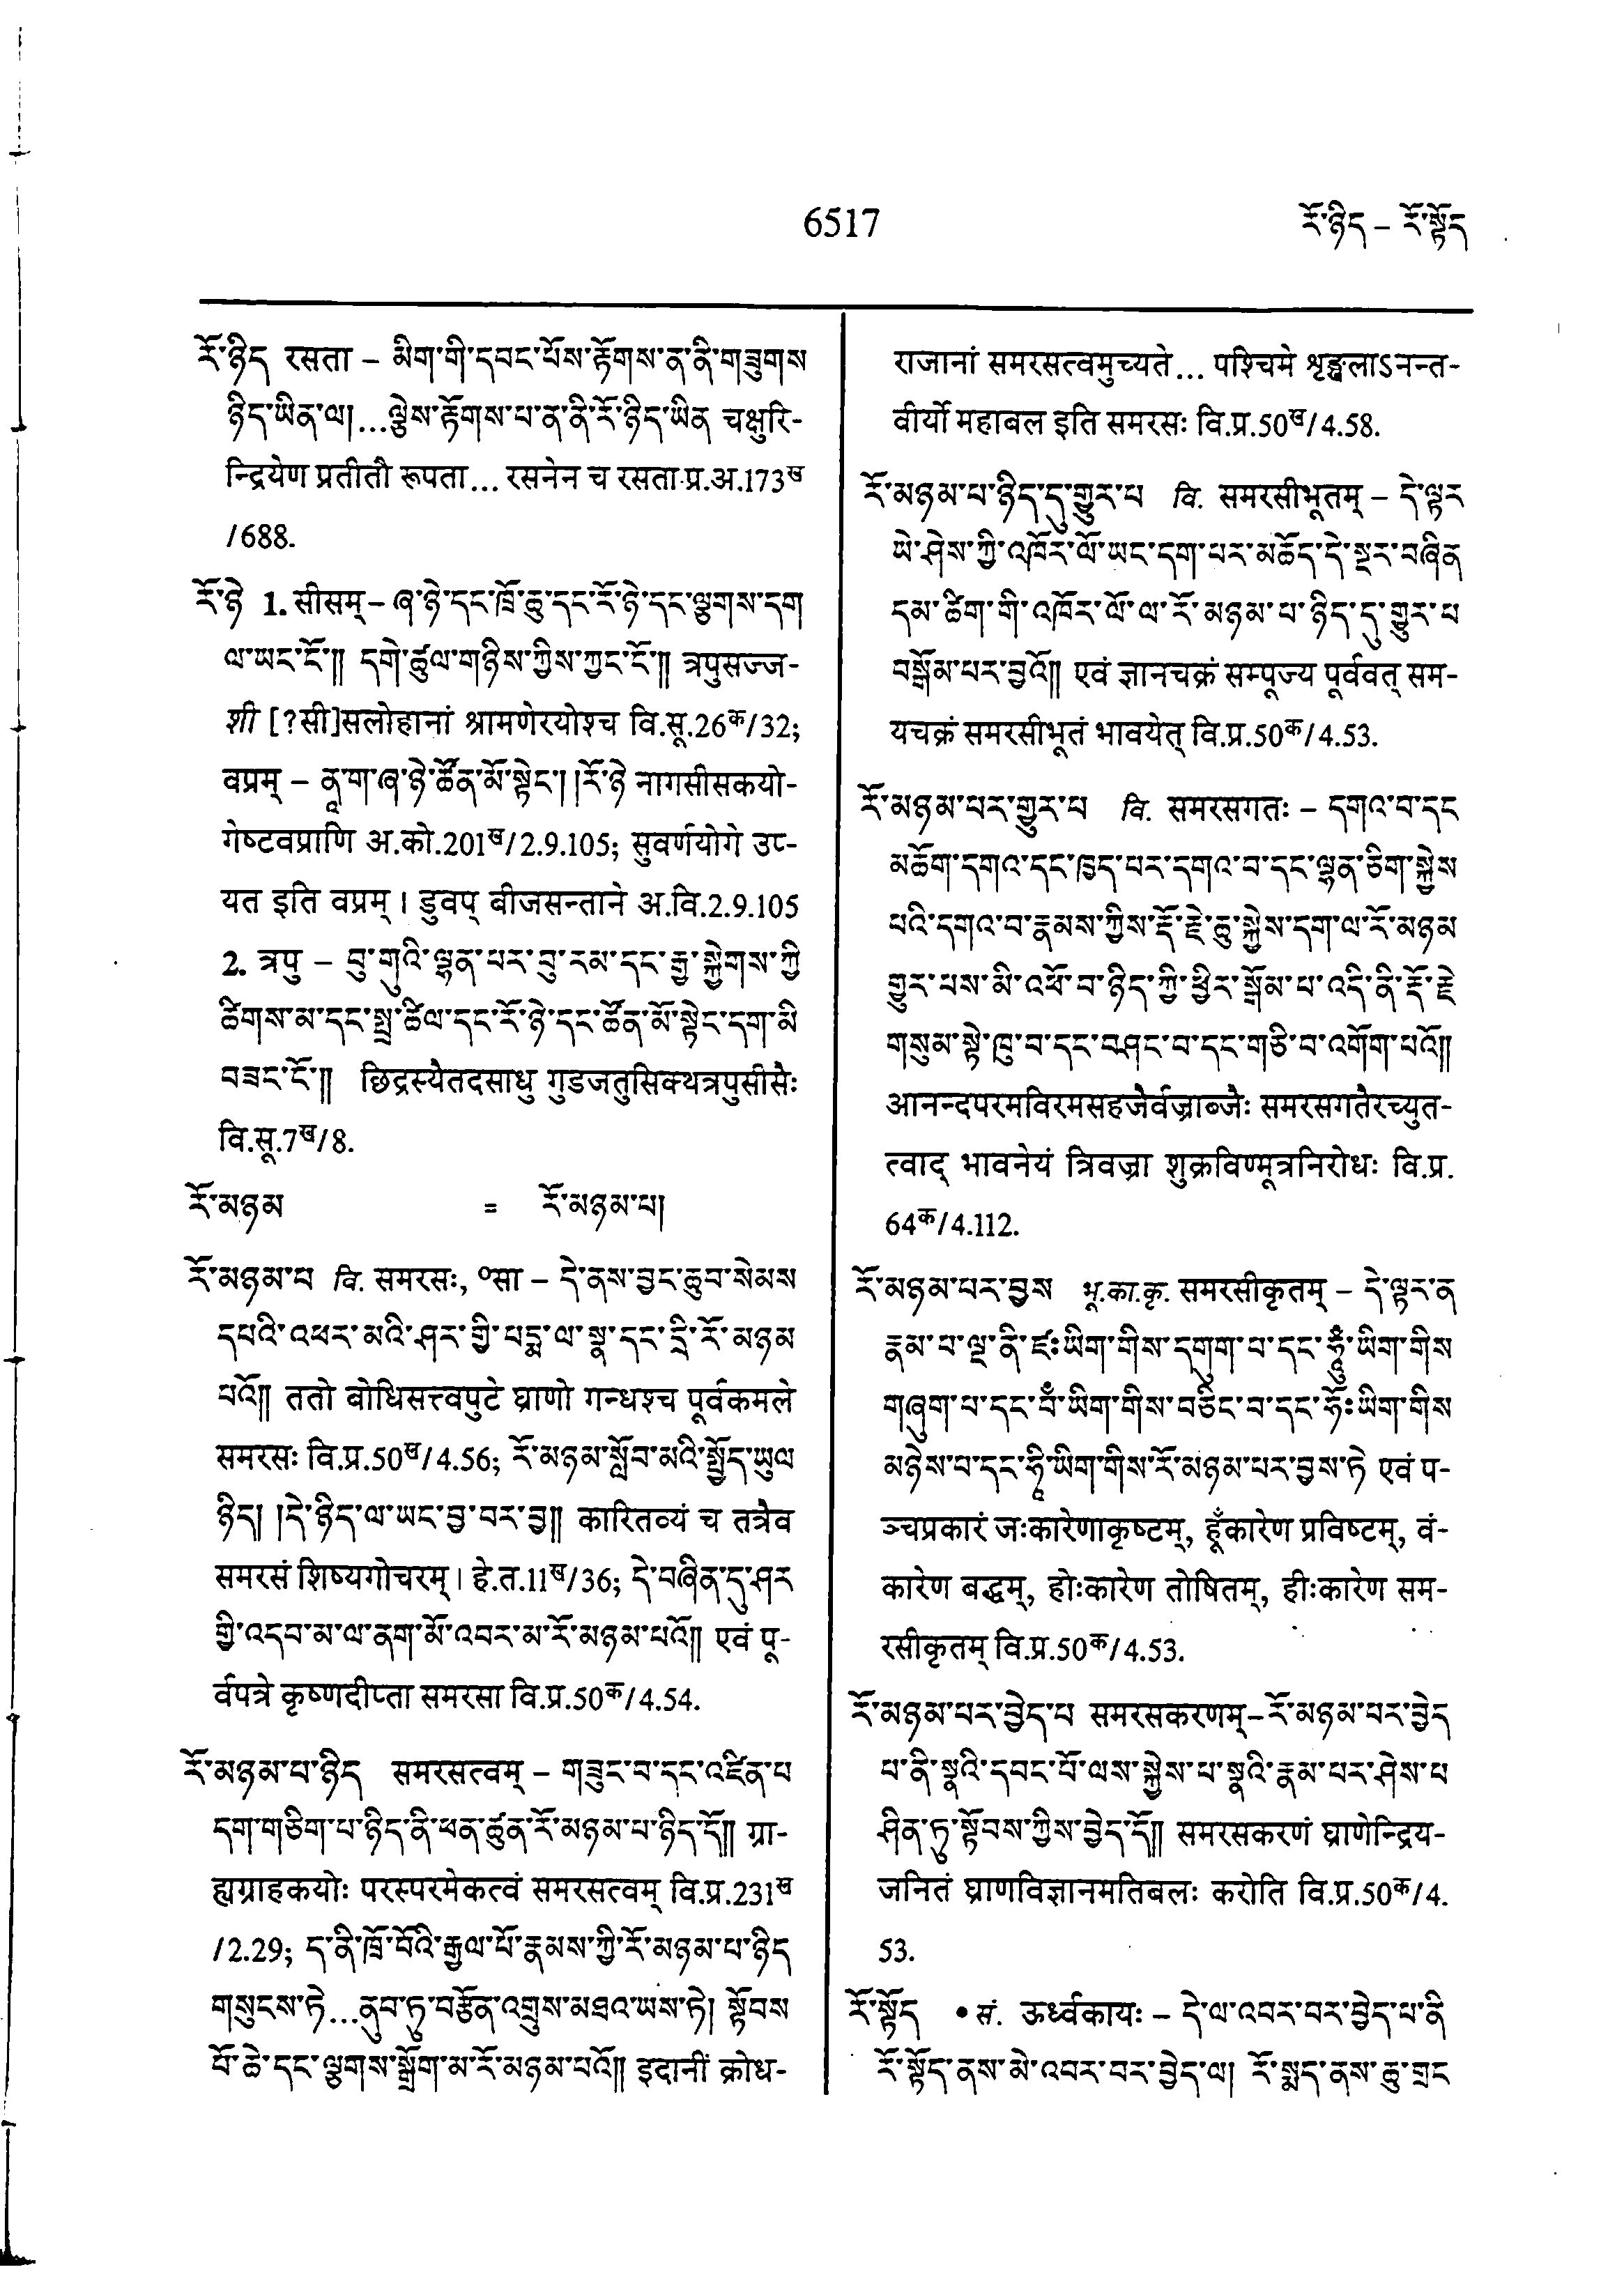 6517
རོ་ཉིད – རོ་སྟོད
རོ་ཉིད रसता – མིག་གི་དབང་པོས་རྟོགས་ན་ནི་གཟུགས
ཉིད་ཡིན་ལ།...ལྕེས་རྟོགས་པ་ན་ནི་རོ་ཉིད་ཡིན चक्षुरि-
न्द्रियेण प्रतीतौ रूपता... रसनेन च रसता प्र.अ.173ख
/688.
རོ་ཉེ 1. सीसम् – ཞ་ཉེ་དང་ཁྲོ་ཆུ་དང་རོ་ཉེ་དང་ལྕགས་དག
ལ་ཡང་ངོ་༎ དགེ་ཚུལ་གཉིས་ཀྱིས་ཀྱང་ངོ་༎ त्रपुसज्ज-
शी [?सी]सलोहानां श्रामणेरयोश्च वि.सू.26क/32;
वप्रम् – ནཱ་ག་ཞ་ཉེ་ཚོན་མོ་སྟེང་། །རོ་ཉེ नागसीसकयो-
गेष्टवप्राणि अ.को.201ख/2.9.105; सुवर्णयोगे उप्-
यत इति वप्रम् । डुवप् बीजसन्ताने अ.वि.2.9.105
2. त्रपु – བུ་གུའི་ལྷན་པར་བུ་རམ་དང་རྒྱ་སྐྱེགས་ཀྱི
ཚིགས་མ་དང་སྤྲ་ཚིལ་དང་རོ་ཉེ་དང་ཚོན་མོ་སྟེང་དག་མི
བཟང་ངོ་༎ छिद्रस्यैतदसाधु गुडजतुसिक्थत्रपुसीसैः
वि.सू.7ख/8.
རོ་མཉམ = རོ་མཉམ་པ།
རོ་མཉམ་པ वि. समरसः, ०सा – དེ་ནས་བྱང་ཆུབ་སེམས
དཔའི་འཕར་མའི་ཤར་གྱི་པདྨ་ལ་སྣ་དང་དྲི་རོ་མཉམ
པའོ༎ ततो बोधिसत्त्वपुटे घ्राणो गन्धश्च पूर्वकमले
समरसः वि.प्र.50ख/4.56; རོ་མཉམ་སློབ་མའི་སྤྱོད་ཡུལ
ཉིད། །དེ་ཉིད་ལ་ཡང་བྱ་བར་བྱ༎ कारितव्यं च तत्रैव
समरसं शिष्यगोचरम् । हे.त.11ख/36; དེ་བཞིན་དུ་ཤར
གྱི་འདབ་མ་ལ་ནག་མོ་འབར་མ་རོ་མཉམ་པའོ༎ एवं पू-
र्वपत्रे कृष्णदीप्ता समरसा वि.प्र.50क/4.54.
རོ་མཉམ་པ་ཉིད समरसत्वम् – གཟུང་བ་དང་འཛིན་པ
དག་གཅིག་པ་ཉིད་ནི་ཕན་ཚུན་རོ་མཉམ་པ་ཉིད་དོ༎ ग्रा-
ह्यग्राहकयोः परस्परमेकत्वं समरसत्वम् वि.प्र.231ख
/2.29; ད་ནི་ཁྲོ་བོའི་རྒྱལ་པོ་རྣམས་ཀྱི་རོ་མཉམ་པ་ཉིད
གསུངས་ཏེ...ནུབ་ཏུ་བརྩོན་འགྲུས་མཐའ་ཡས་ཏེ། སྟོབས
པོ་ཆེ་དང་ལྕགས་སྒྲོག་མ་རོ་མཉམ་པའོ༎ इदानीं क्रोध-
राजानां समरसत्वमुच्यते... पश्चिमे शृङ्खलाऽनन्त-
वीर्यो महाबल इति समरसः वि.प्र.50ख/4.58.
རོ་མཉམ་པ་ཉིད་དུ་གྱུར་པ वि. समरसीभूतम् – དེ་ལྟར
ཡེ་ཤེས་ཀྱི་འཁོར་ལོ་ཡང་དག་པར་མཆོད་དེ་སྔར་བཞིན
དམ་ཚིག་གི་འཁོར་ལོ་ལ་རོ་མཉམ་པ་ཉིད་དུ་གྱུར་པ
བསྒོམ་པར་བྱའོ༎ एवं ज्ञानचक्रं सम्पूज्य पूर्ववत् सम-
यचक्रं समरसीभूतं भावयेत् वि.प्र.50क/4.53.
རོ་མཉམ་པར་གྱུར་པ वि. समरसगतः – དགའ་བ་དང
མཆོག་དགའ་དང་ཁྱད་པར་དགའ་བ་དང་ལྷན་ཅིག་སྐྱེས
པའི་དགའ་བ་རྣམས་ཀྱིས་རྡོ་རྗེ་ཆུ་སྐྱེས་དག་ལ་རོ་མཉམ
གྱུར་པས་མི་འཕོ་བ་ཉིད་ཀྱི་ཕྱིར་སྒོམ་པ་འདི་ནི་རྡོ་རྗེ
གསུམ་སྟེ་ཁུ་བ་དང་བཤང་བ་དང་གཅི་བ་འགོག་པའོ༎
आनन्दपरमविरमसहजैर्वज्राब्जैः समरसगतैरच्युत-
त्वाद् भावनेयं त्रिवज्रा शुक्रविण्मूत्रनिरोधः वि.प्र.
64क/4.112.
རོ་མཉམ་པར་བྱས भू.का.कृ. समरसीकृतम् – དེ་ལྟར་ན
རྣམ་པ་ལྔ་ནི་ཛཿཡིག་གིས་དགུག་པ་དང་ཧཱུྃ་ཡིག་གིས
གཞུག་པ་དང་བྃ་ཡིག་གིས་བཅིང་བ་དང་ཧོཿཡིག་གིས
མཉེས་པ་དང་ཧཱི་ཡིག་གིས་རོ་མཉམ་པར་བྱས་ཏེ एवं प-
ञ्चप्रकारं जःकारेणाकृष्टम्, हूँकारेण प्रविष्टम्, वं-
कारेण बद्धम्, होःकारेण तोषितम्, हीःकारेण सम-
रसीकृतम् वि.प्र.50क/4.53.
རོ་མཉམ་པར་བྱེད་པ समरसकरणम् – རོ་མཉམ་པར་བྱེད
པ་ནི་སྣའི་དབང་པོ་ལས་སྐྱེས་པ་སྣའི་རྣམ་པར་ཤེས་པ
ཤིན་ཏུ་སྟོབས་ཀྱིས་བྱེད་དོ༎ समरसकरणं घ्राणेन्द्रिय-
जनितं घ्राणविज्ञानमतिबलः करोति वि.प्र.50क/4.
53.
རོ་སྟོད • सं. ऊर्ध्वकायः – དེ་ལ་འབར་བར་བྱེད་པ་ནི
རོ་སྟོད་ནས་མེ་འབར་བར་བྱེད་ལ། རོ་སྨད་ནས་ཆུ་གྲང